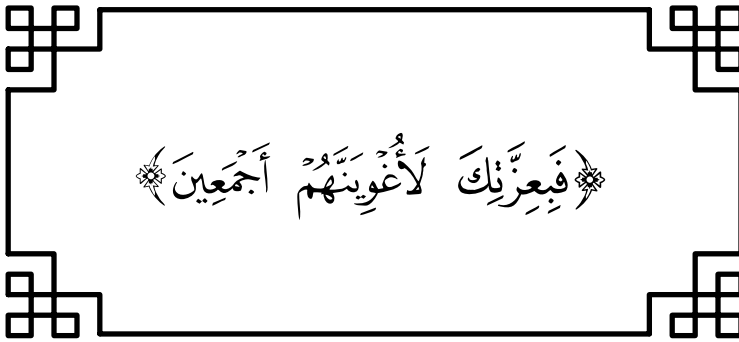 ﴿فَبِعِزَّتِكَ لَأُغْوِيَنَّهُمْ أَجْمَعِينَ﴾